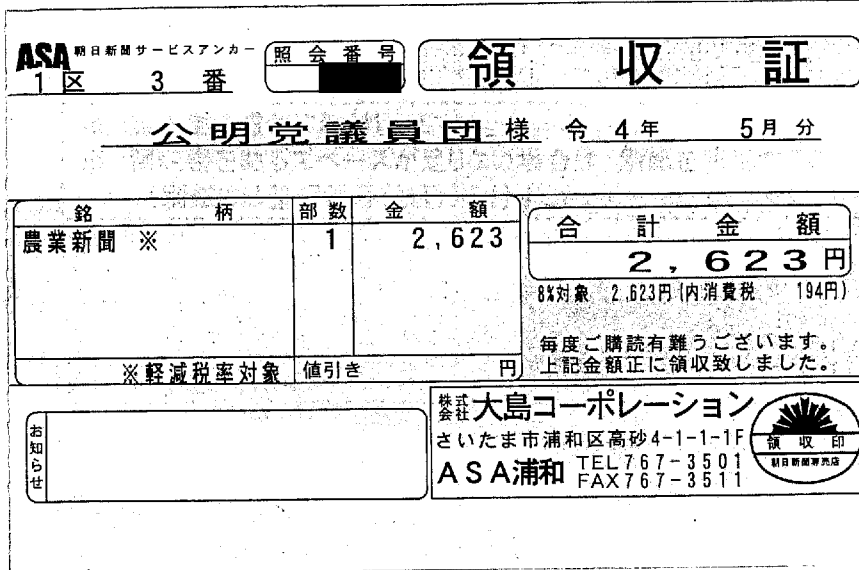 ASA 朝日新聞サービスアンカー
1区 3番
照会番号
領収証
公明党議員団 様 令 4年 5月分
銘柄 部数 金額
農業新聞 ※ 1 2,623
※軽減税率対象 値引き 円
合計金額
2,623円
8%対象 2,623円(内消費税 194円)
毎度ご購読有難うございます。
上記金額正に領収致しました。
お知らせ
株式会社 大島コーポレーション
さいたま市浦和区高砂4-1-1-1F
ASA浦和 TEL767-3501
FAX767-3511
領収印
朝日新聞専売店